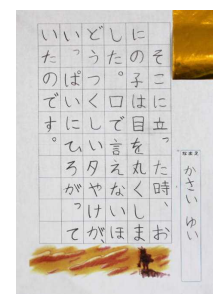 そこに立った時、お
にの子は目を丸くしま
した。口で言えないほ
どうつくしい夕やけが、
いっぱいにひろがって
いたのです。
かさい ゆい